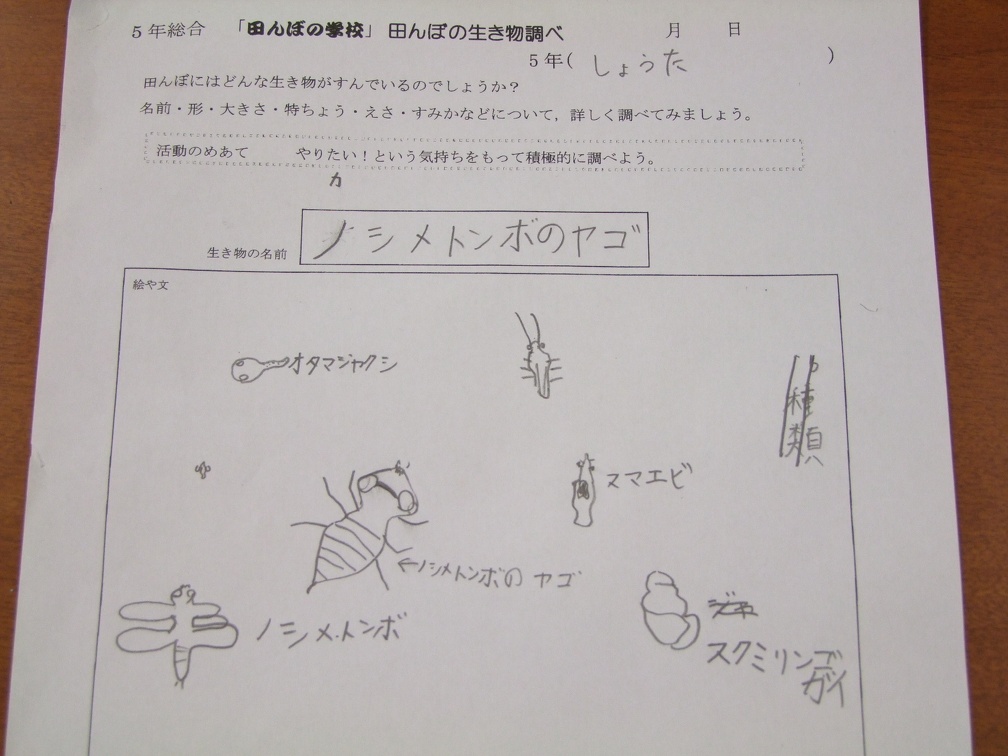 5年総合 「田んぼの学校」 田んぼの生き物調べ 月 日
5年( しょうた )
田んぼにはどんな生き物がすんでいるのでしょうか?
名前・形・大きさ・特ちょう・えさ・すみかなどについて,詳しく調べてみましょう。
活動のめあて やりたい!という気持ちをもって積極的に調べよう。
カ
生き物の名前 ノシメトンボのヤゴ
絵や文
オタマジャクシ
種類
ヌマエビ
←ノシメトンボの ヤゴ
ノシメトンボ
スクミリンゴ
ガイ